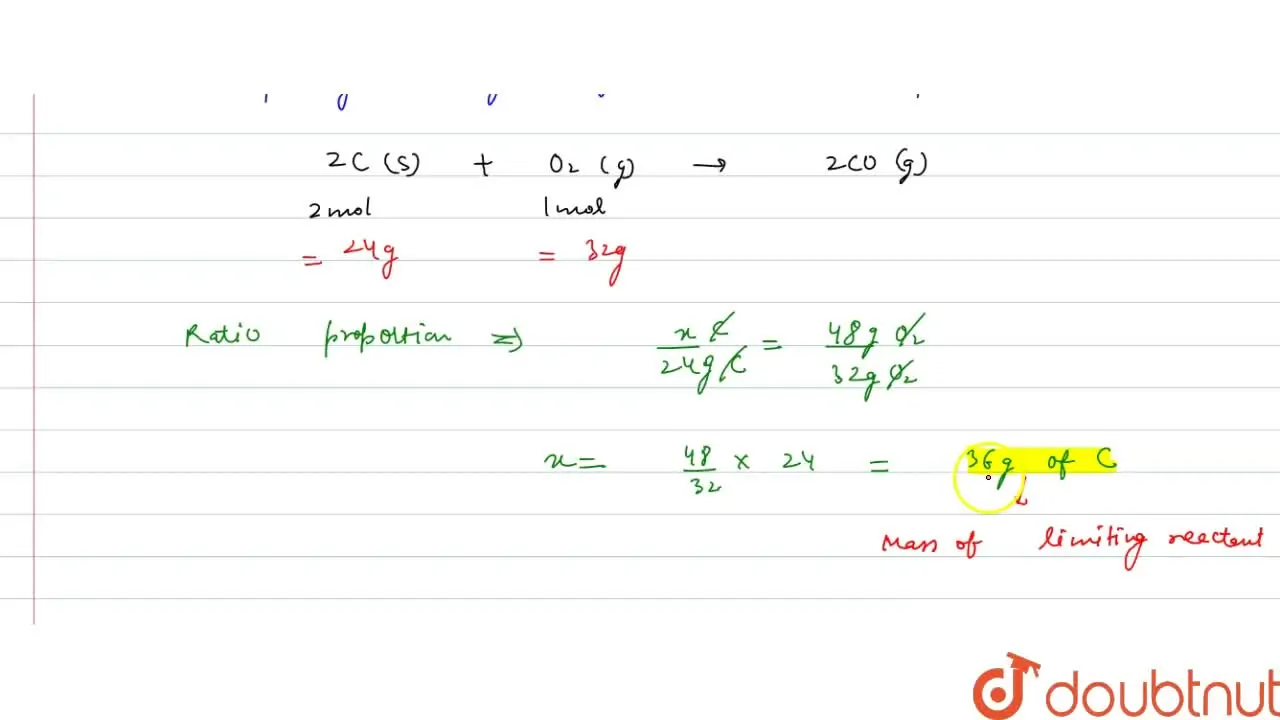 2C (s) + O2 (g) → 2CO (g)
2 mol 1 mol
= 24g = 32g
Ratio proportion ⇒ x C / 24g C = 48g O2 / 32g O2
x = 48/32 × 24 = 36g of C
Mass of limiting reactent
doubtnut